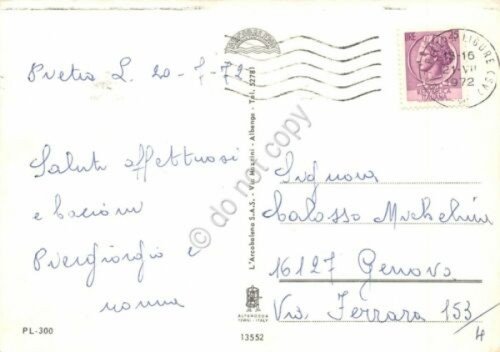 Pietra L. 20-7-72
Saluti affettuosi
e bacioni
Piergiorgio e
nonna
PL-300
L'Arcobaleno S.A.S. - Via Mazzini - Albenga - Tel. 52781
ALTEROCCA
TERNI - ITALY
13552
LIGURE
15-16
21-VII
1972
(SV)
ITALIANA
Signora
Calosso Michelina
16127 Genova
Via Ferrara 153/4
do not copy